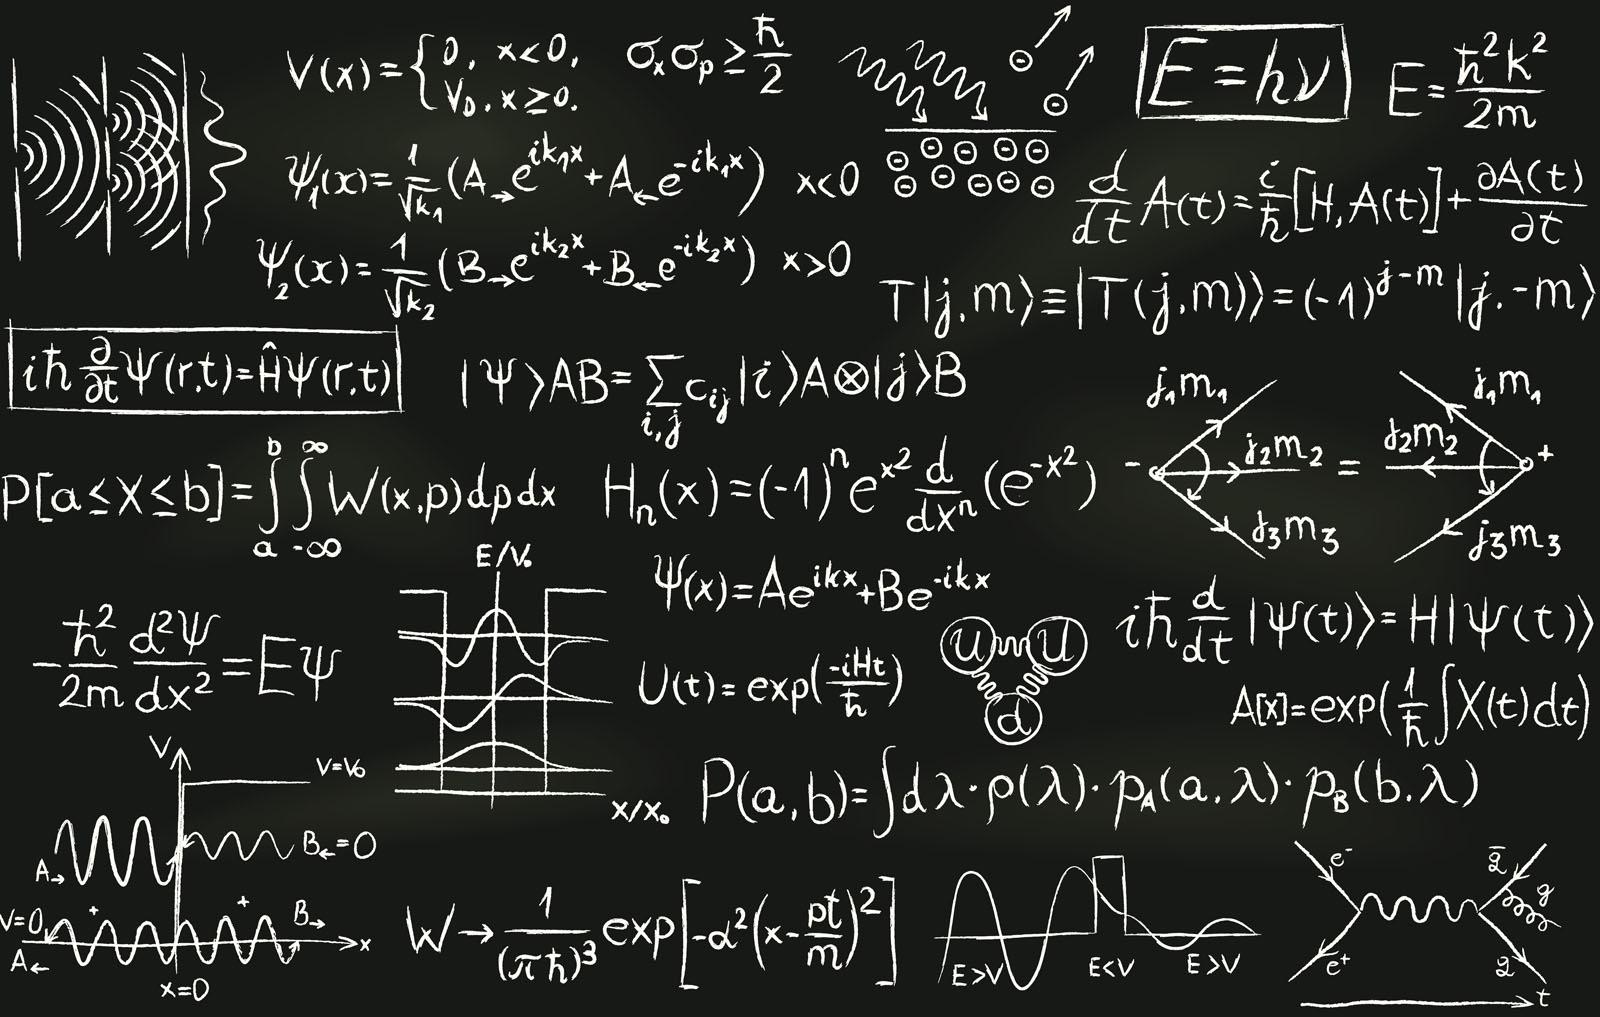 V(x)={0, x<0,
V₀, x≥0.
σₓσₚ≥ħ/2
E=hν
E=ħ²k²/2m
Ψ₁(x)=1/√k₁(A→e^{ik₁x}+A←e^{-ik₁x}) x<0
d/dt A(t)=i/ħ[H,A(t)]+∂A(t)/∂t
Ψ₂(x)=1/√k₂(B→e^{ik₂x}+B←e^{-ik₂x}) x>0
T|j,m⟩≡|T(j,m)⟩=(-1)^{j-m}|j.-m⟩
iħ ∂/∂t Ψ(r,t)=ĤΨ(r,t)
|Ψ⟩AB=∑_{i,j} c_{ij}|i⟩A⊗|j⟩B
j₁m₁
j₂m₂
j₃m₃
- = +
j₁m₁
j₂m₂
j₃m₃
P[a≤X≤b]=∫_a^b ∫_{-∞}^∞ W(x,p)dpdx
Hₙ(x)=(-1)ⁿe^{x²} d/dxⁿ(e^{-x²})
E/V₀
Ψ(x)=Ae^{ikx}+Be^{-ikx}
-ħ²/2m d²Ψ/dx²=EΨ
U(t)=exp(-iHt/ħ)
u u
d
iħ d/dt|Ψ(t)⟩=H|Ψ(t)⟩
A[x]=exp(1/ħ∫X(t)dt)
X/X₀
P(a,b)=∫dλ·ρ(λ)·p_A(a.λ)·p_B(b.λ)
V
V=V₀
A→
B←=0
V=0
+ +
B→
A←
x
x=0
W→1/(πħ)³ exp[-α²(x-pt/m)²]
E>V E<V E>V
e⁻
e⁺
g
t